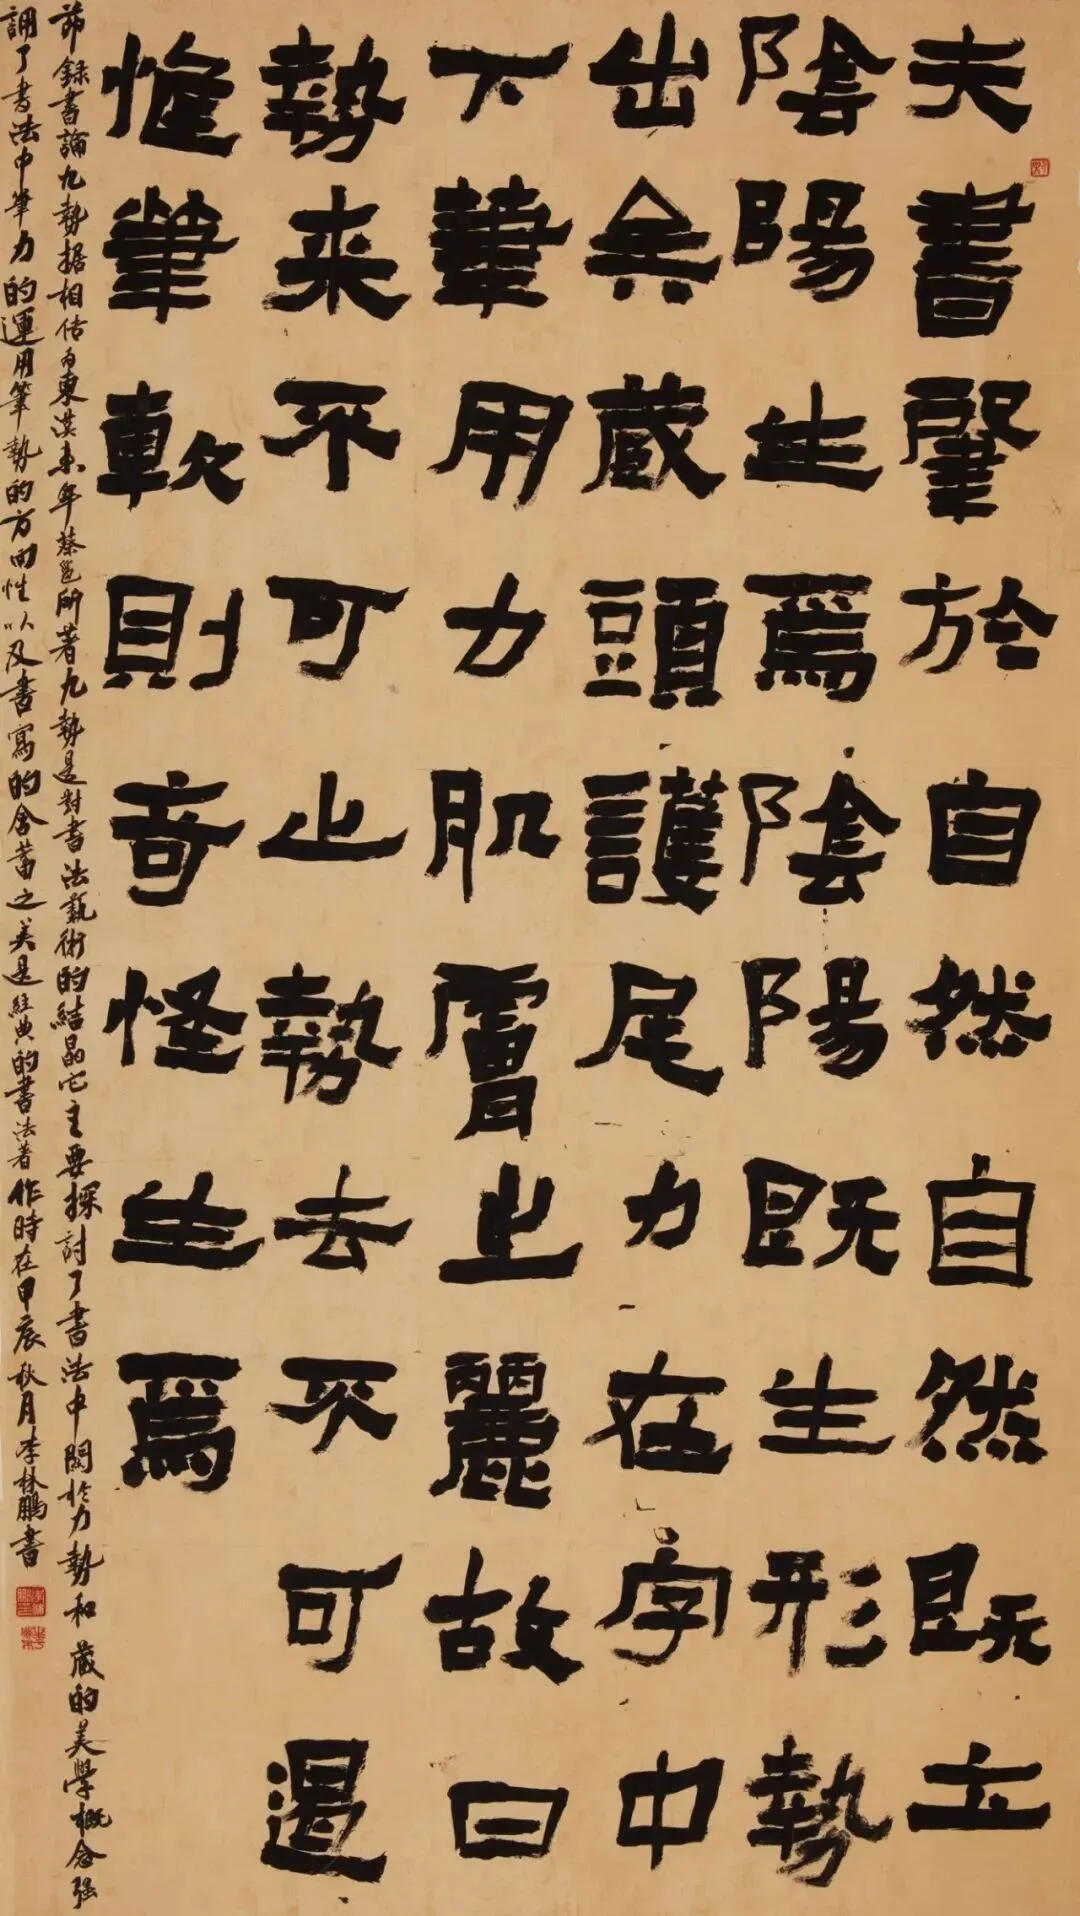 夫書肇於自然自然既立
陰陽生焉陰陽既生形勢
出矣藏頭護尾力在字中
下筆用力肌膚之麗故曰
勢来不可止勢去不可遏
惟筆軟則奇怪生焉
節録書論九勢據相传为東漢末年蔡邕所著九勢是對書法藝術的結晶它主要探討了書法中關於力勢和藏的美學概念强
調了書法中筆力的運用筆勢的方向性以及書寫的含蓄之美是經典的書法著作時在甲辰秋月李林鵬書